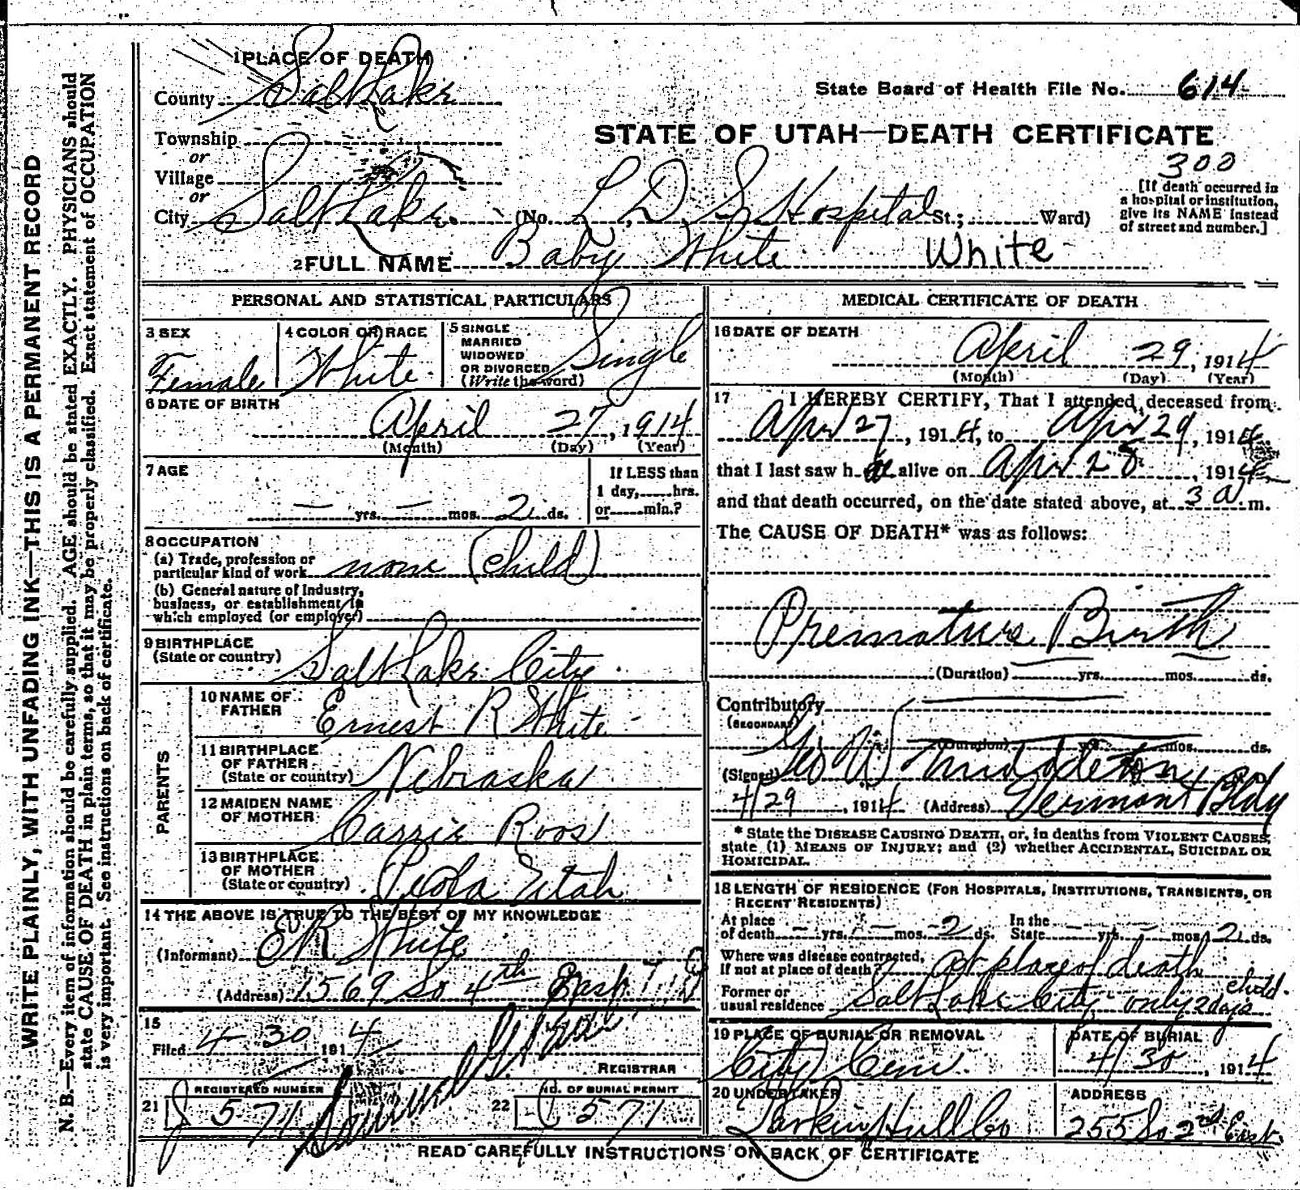 WRITE PLAINLY, WITH UNFADING INK—THIS IS A PERMANENT RECORD
N. B.—Every item of information should be carefully supplied. AGE should be stated EXACTLY. PHYSICIANS should
state CAUSE OF DEATH in plain terms, so that it may be properly classified. Exact statement of OCCUPATION
is very important. See instructions on back of certificate.
1 PLACE OF DEATH
County Salt Lake
Township
or
Village
or
City Salt Lake (No. L D S Hospital St.; Ward)
State Board of Health File No. 614
STATE OF UTAH—DEATH CERTIFICATE
300
[If death occurred in
a hospital or institution,
give its NAME instead
of street and number.]
2 FULL NAME Baby White White
PERSONAL AND STATISTICAL PARTICULARS
3 SEX
Female
4 COLOR OR RACE
White
5 SINGLE
MARRIED
WIDOWED
OR DIVORCED
(Write the word)
Single
6 DATE OF BIRTH
April 27, 1914
(Month) (Day) (Year)
7 AGE
— yrs. — mos. 2 ds.
If LESS than
1 day, hrs.
or min.?
8 OCCUPATION
(a) Trade, profession or
particular kind of work none (child)
(b) General nature of Industry,
business, or establishment in
which employed (or employer)
9 BIRTHPLACE
(State or country) Salt Lake City
PARENTS
10 NAME OF
FATHER Ernest R White
11 BIRTHPLACE
OF FATHER
(State or country) Nebraska
12 MAIDEN NAME
OF MOTHER Carrie Roos
13 BIRTHPLACE
OF MOTHER
(State or country) Utah
14 THE ABOVE IS TRUE TO THE BEST OF MY KNOWLEDGE
(Informant) E R White
(Address) 1569 So 4th East
15
Filed 4-30 1914
REGISTRAR
21 REGISTERED NUMBER
J 571
22 NO. OF BURIAL PERMIT
J 571
MEDICAL CERTIFICATE OF DEATH
16 DATE OF DEATH
April 29, 1914
(Month) (Day) (Year)
17 I HEREBY CERTIFY, That I attended deceased from
Apr 27, 1914, to Apr 29, 1914
that I last saw h alive on Apr 28, 1914
and that death occurred, on the date stated above, at 3 a m.
The CAUSE OF DEATH* was as follows:
Premature Birth
(Duration) yrs. mos. ds.
Contributory
(SECONDARY)
(Duration) yrs. mos. ds.
(Signed) Geo W Middleton
4/29, 1914 (Address) Vermont Bldg
* State the DISEASE CAUSING DEATH, or, in deaths from VIOLENT CAUSES,
state (1) MEANS OF INJURY; and (2) whether ACCIDENTAL, SUICIDAL OR
HOMICIDAL.
18 LENGTH OF RESIDENCE (FOR HOSPITALS, INSTITUTIONS, TRANSIENTS, OR
RECENT RESIDENTS)
At place
of death — yrs. — mos. 2 ds.
In the
State — yrs. — mos. 2 ds.
Where was disease contracted,
if not at place of death? At place of death
Former or
usual residence Salt Lake City only 2 days child.
19 PLACE OF BURIAL OR REMOVAL
City Cem.
DATE OF BURIAL
4/30, 1914
20 UNDERTAKER
Larkin Hull Co
ADDRESS
255 So 2nd East.
READ CAREFULLY INSTRUCTIONS ON BACK OF CERTIFICATE